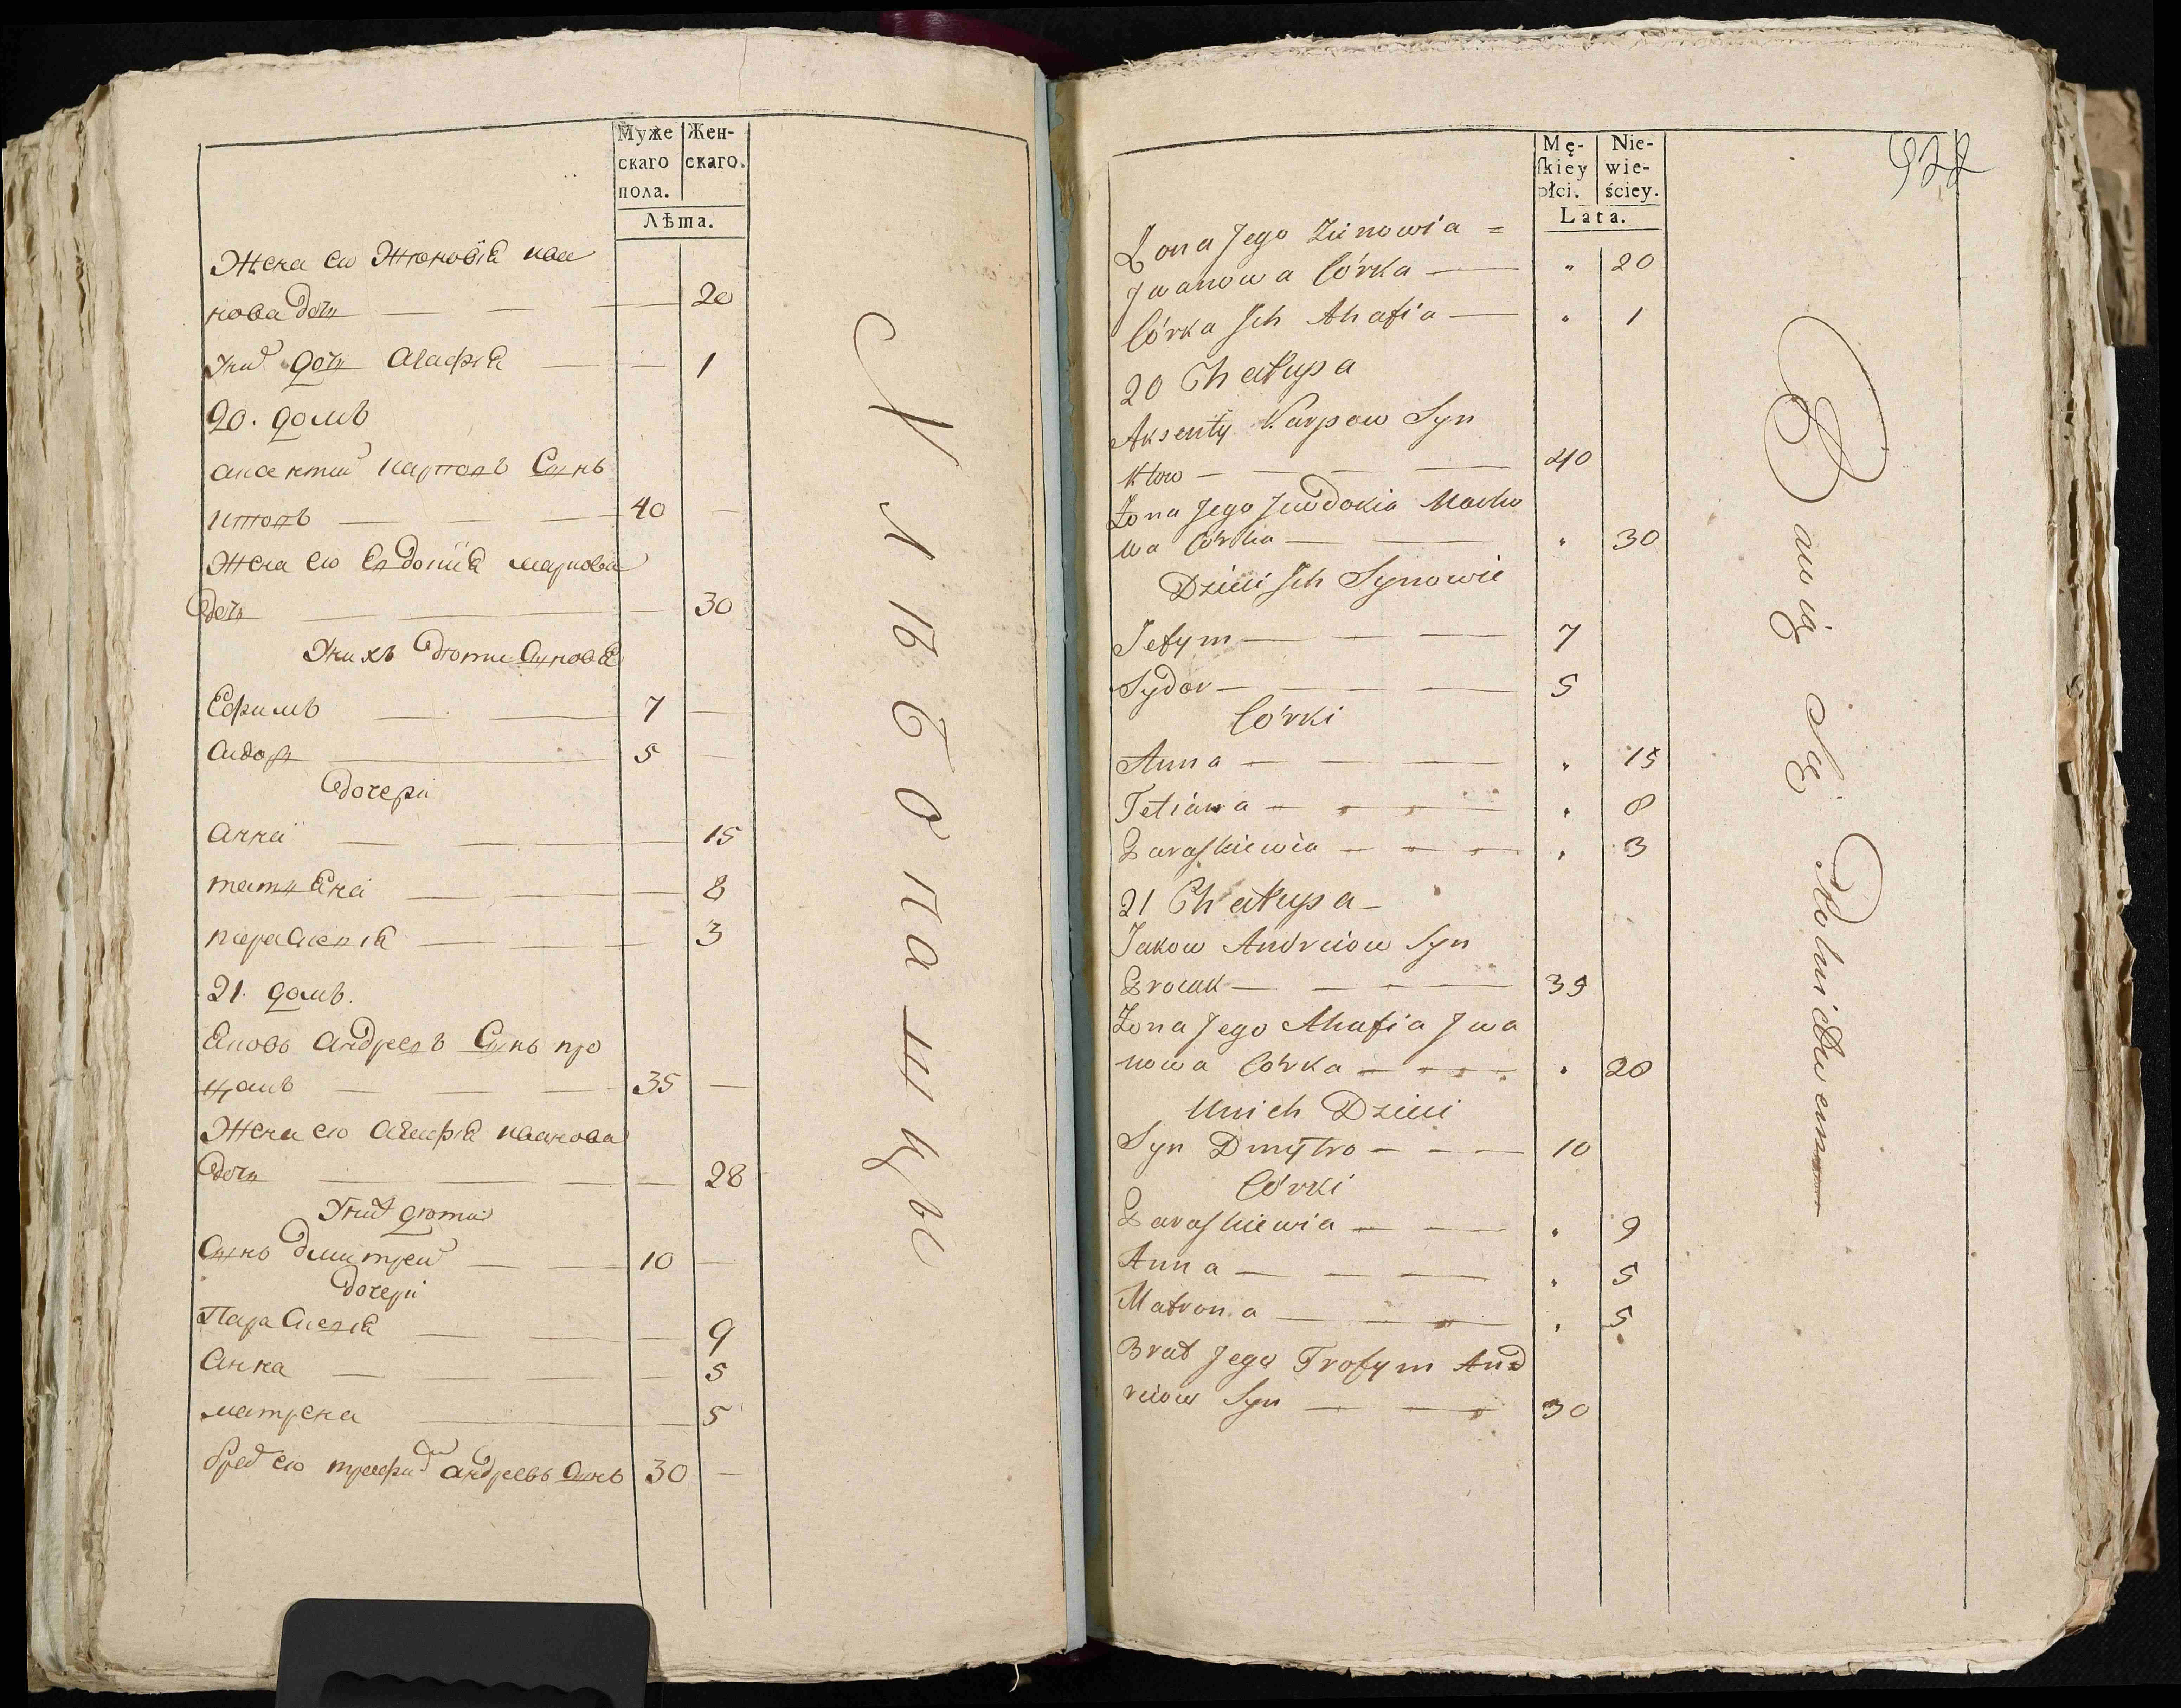 Муже
скаго
пола.
Жен-
скаго.
Лѣта.
Жена ево Жюновія ива
нова дочь 20
Ихъ дочь Агафія 1
20. домъ
Аксентий Карповъ Сынъ
40
Жена ево Евдокия Маркова
дочь 30
У нихъ дѣти Сыновья
Ефимъ 7
Сидор 5
дочери
Анна 15
татьяна 8
параскевія 3
21. домъ.
Яковъ Андреевъ Сынъ про
цакъ 35
Жена ево Агафія иванова
дочь 28
У них дѣти
Сынъ дмитрей 10
дочери
Параскевія 9
Анна 5
матрена 5
брат ево трофим Андреевъ Сынъ 30
Хлѣбопашцы
922
Mę-
skiey
płci.
Nie-
wie-
ściey.
Lata.
Żona Jego Zinowia =
Jwanowa Córka " 20
Córka Jch Ahafia " 1
20 Chałupa
Aksenty Karpow Syn
40
Żona Jego Jewdokia Marko
wa Córka " 30
Dzieci Jch Synowie
Jefym 7
Sydor 5
Córki
Anna " 15
Tetiana " 8
Paraskiewia " 3
21 Chałupa
Jakow Andreiow Syn
Procak 35
Żona Jego Ahafia Jwa
nowa Córka " 28
U nich Dzieci
Syn Dmytro 10
Córki
Paraskiewia " 9
Anna " 5
Matrona " 5
Brat Jego Trofym And
reiow Syn 30
Bawią Się Rolnictwem